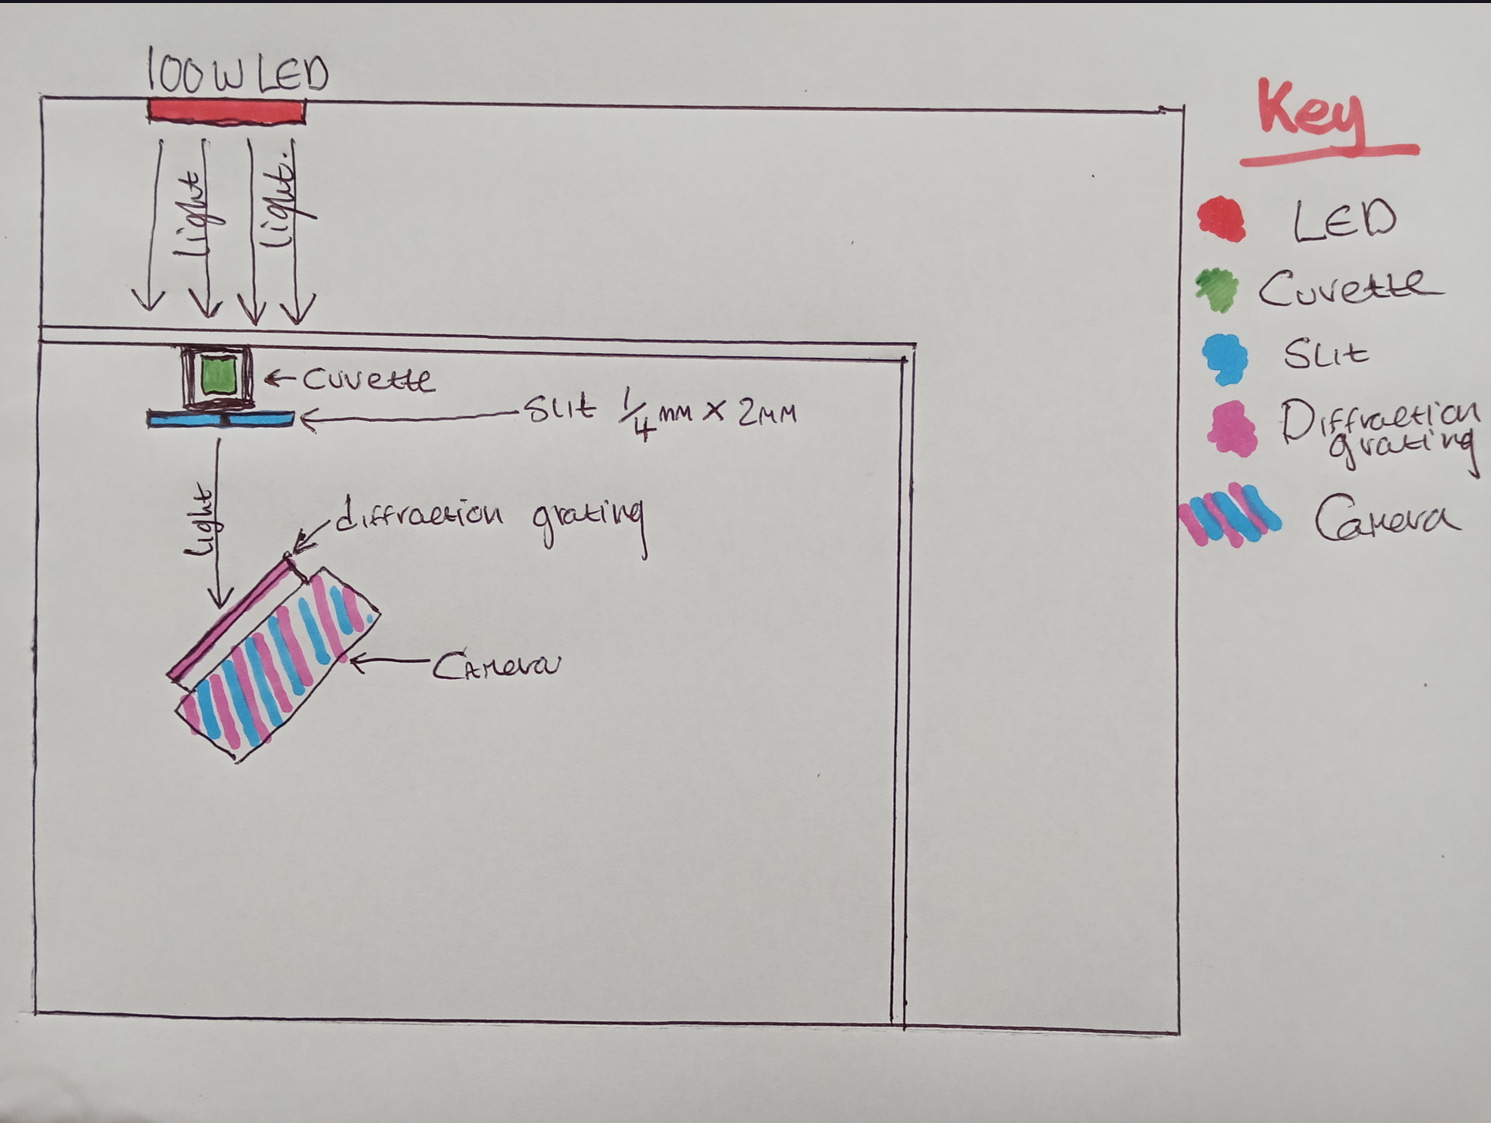 100W LED
light
light.
← Cuvette
Slit 1/4 mm x 2mm
light
diffraction grating
Camera
Key
LED
Cuvette
Slit
Diffraction
grating
Camera